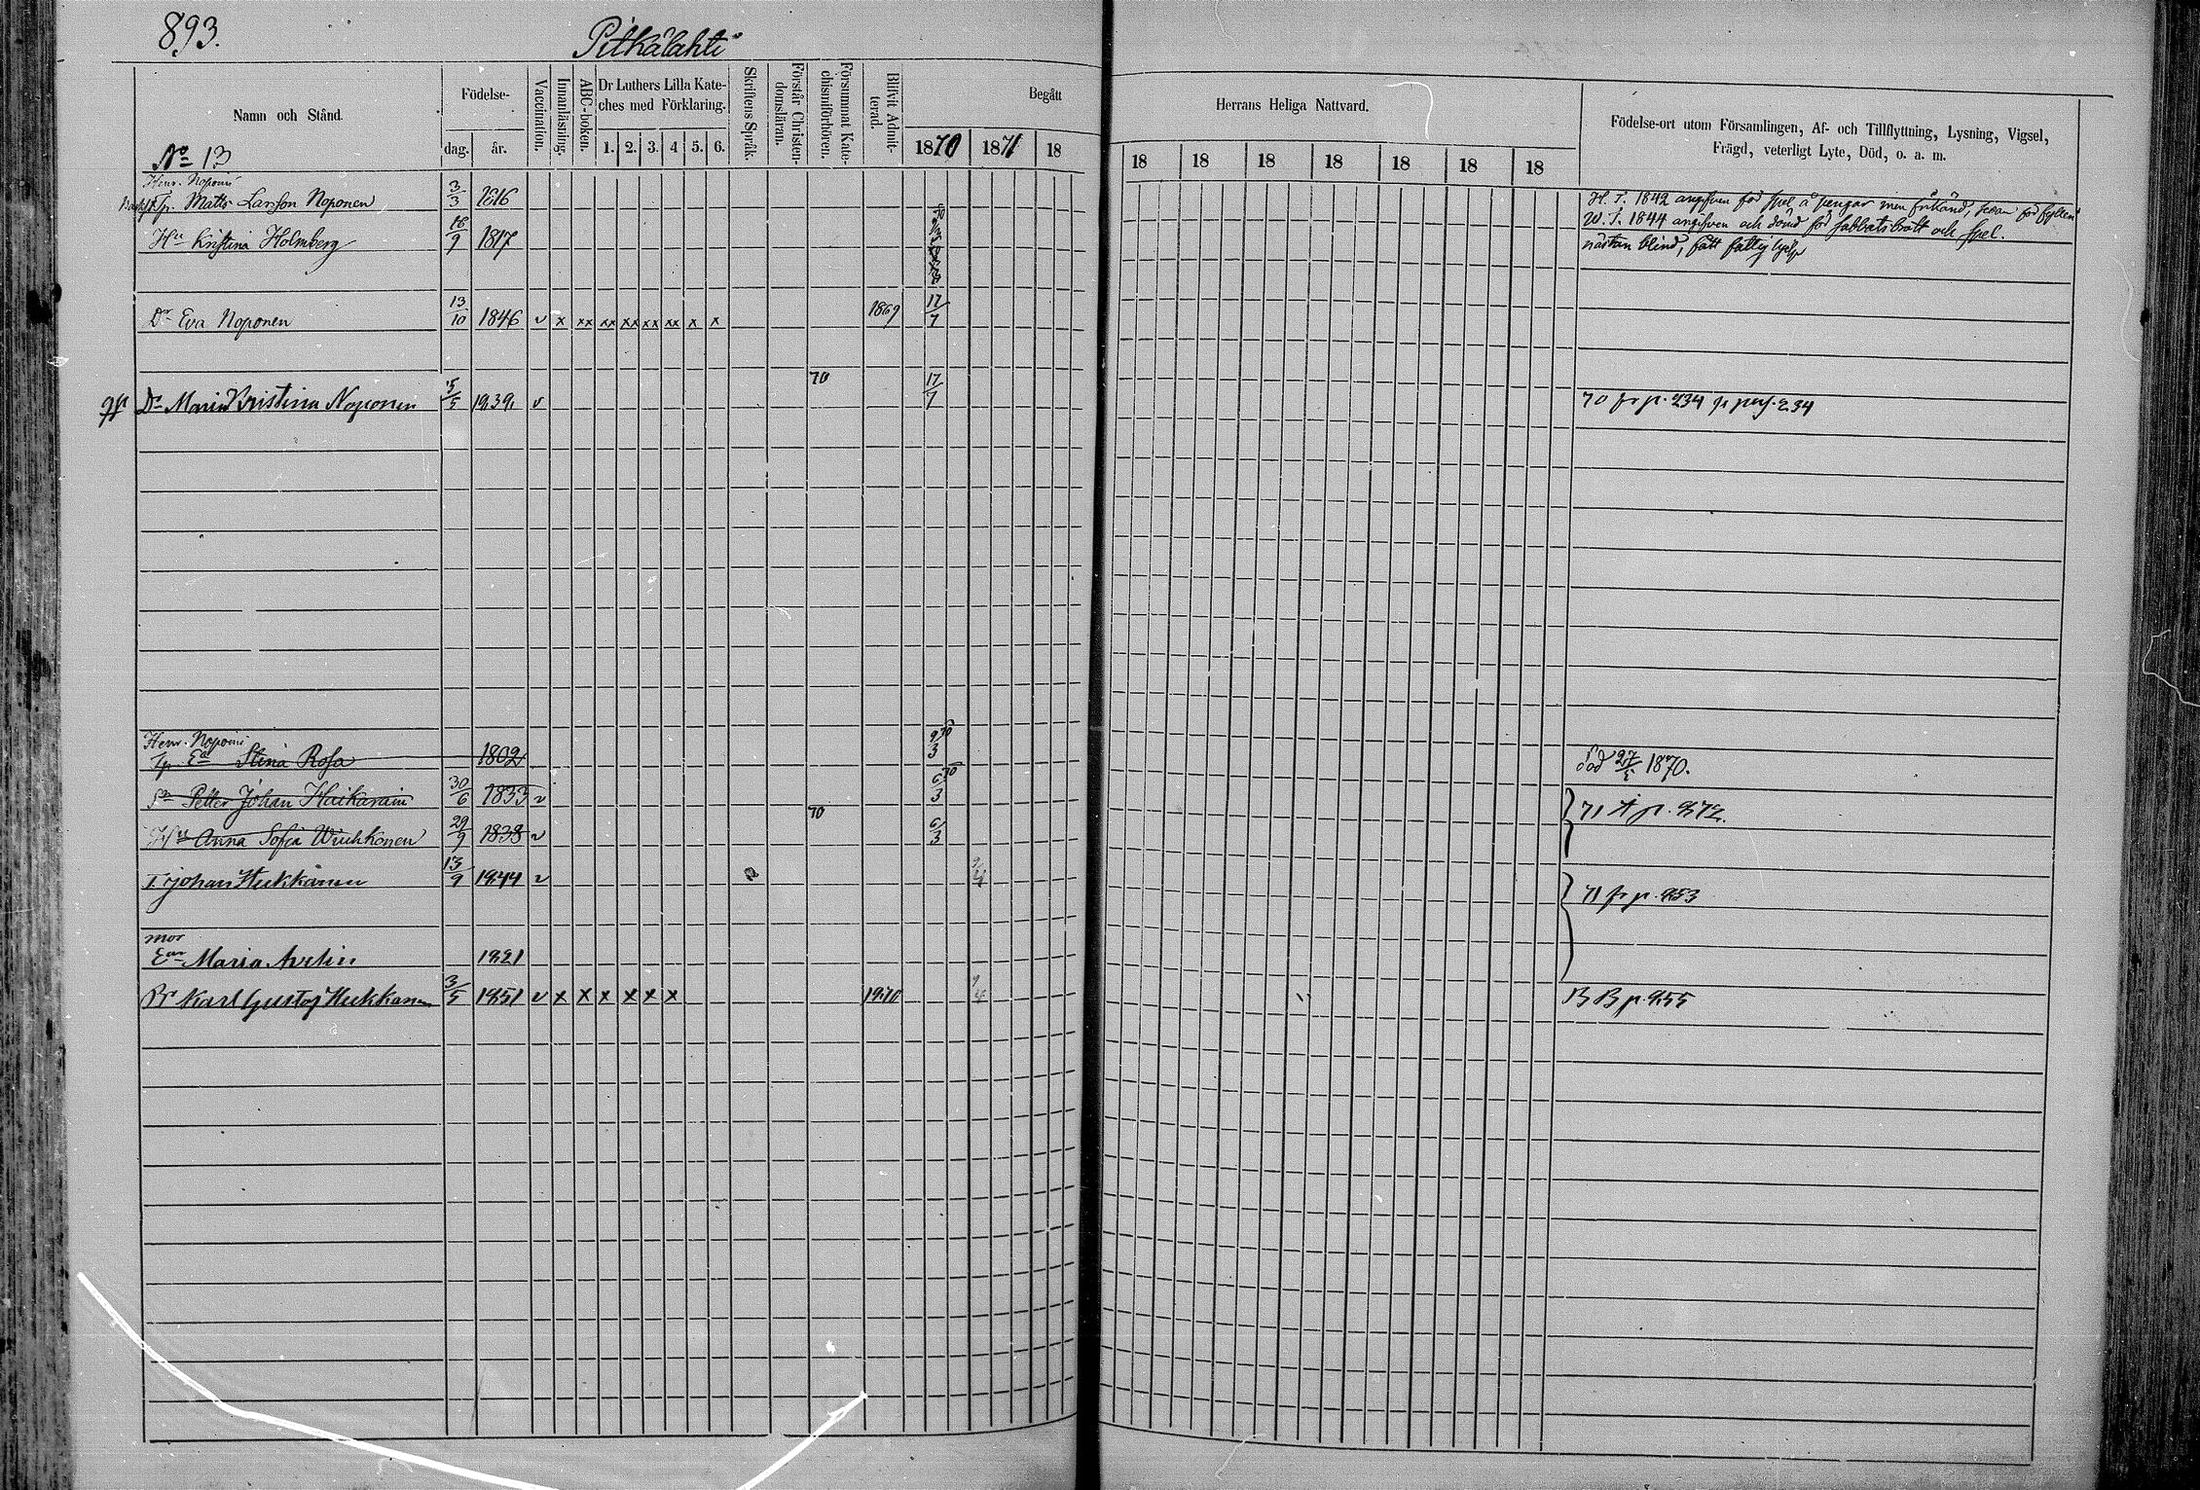 893.
Pitkälahti
Namn och Stånd.
Födelse-
dag.
år.
Vaccination.
Innanläsning.
ABC-boken.
Dr Luthers Lilla Kate-
ches med Förklaring.
1. 2. 3. 4 5. 6.
Skriftens Språk.
Förstår Christen-
domsläran.
Försummat Kate-
chismiförhören.
Blifvit Admit-
terad.
Begått
1870 1871 18
Herrans Heliga Nattvard.
18 18 18 18 18 18 18
Födelse-ort utom Församlingen, Af- och Tillflyttning, Lysning, Vigsel,
Frägd, veterligt Lyte, Död, o. a. m.
No 13
Henr. Noponi
Tp. Matts Larsson Noponen 3/3 1816 H. T. 1842 angifven för spel å pengar men
W. T. 1844 angifven och dömd för sabbatsbrott och spel.
Hu Kristina Holmberg 16/9 1817 nästan blind, fått fattighjelp
Dr Eva Noponen 13/10 1846 v x xx xx xx xx xx x x 1869 17/7
Dr Maria Kristina Noponen 5/5 1839 v 70 17/7 70 fr p. 234
Henr. Noponi
Tp. Ea Stina Rosa 1802 9/3 70 död 1870.
Sn Petter Johan Huikarain 30/6 1833 v 6/3 70
71 p. 872.
Hu Anna Sofia Wuhkonen 29/9 1838 v 70 6/3
T. Johan Hukkanen 13/9 1844 v 71 fr p. 853
mor
Enn Maria Avelin 1821
Br Karl Gustaf Hukkanen 3/5 1851 v x x x x x x 1870 BB p. 855